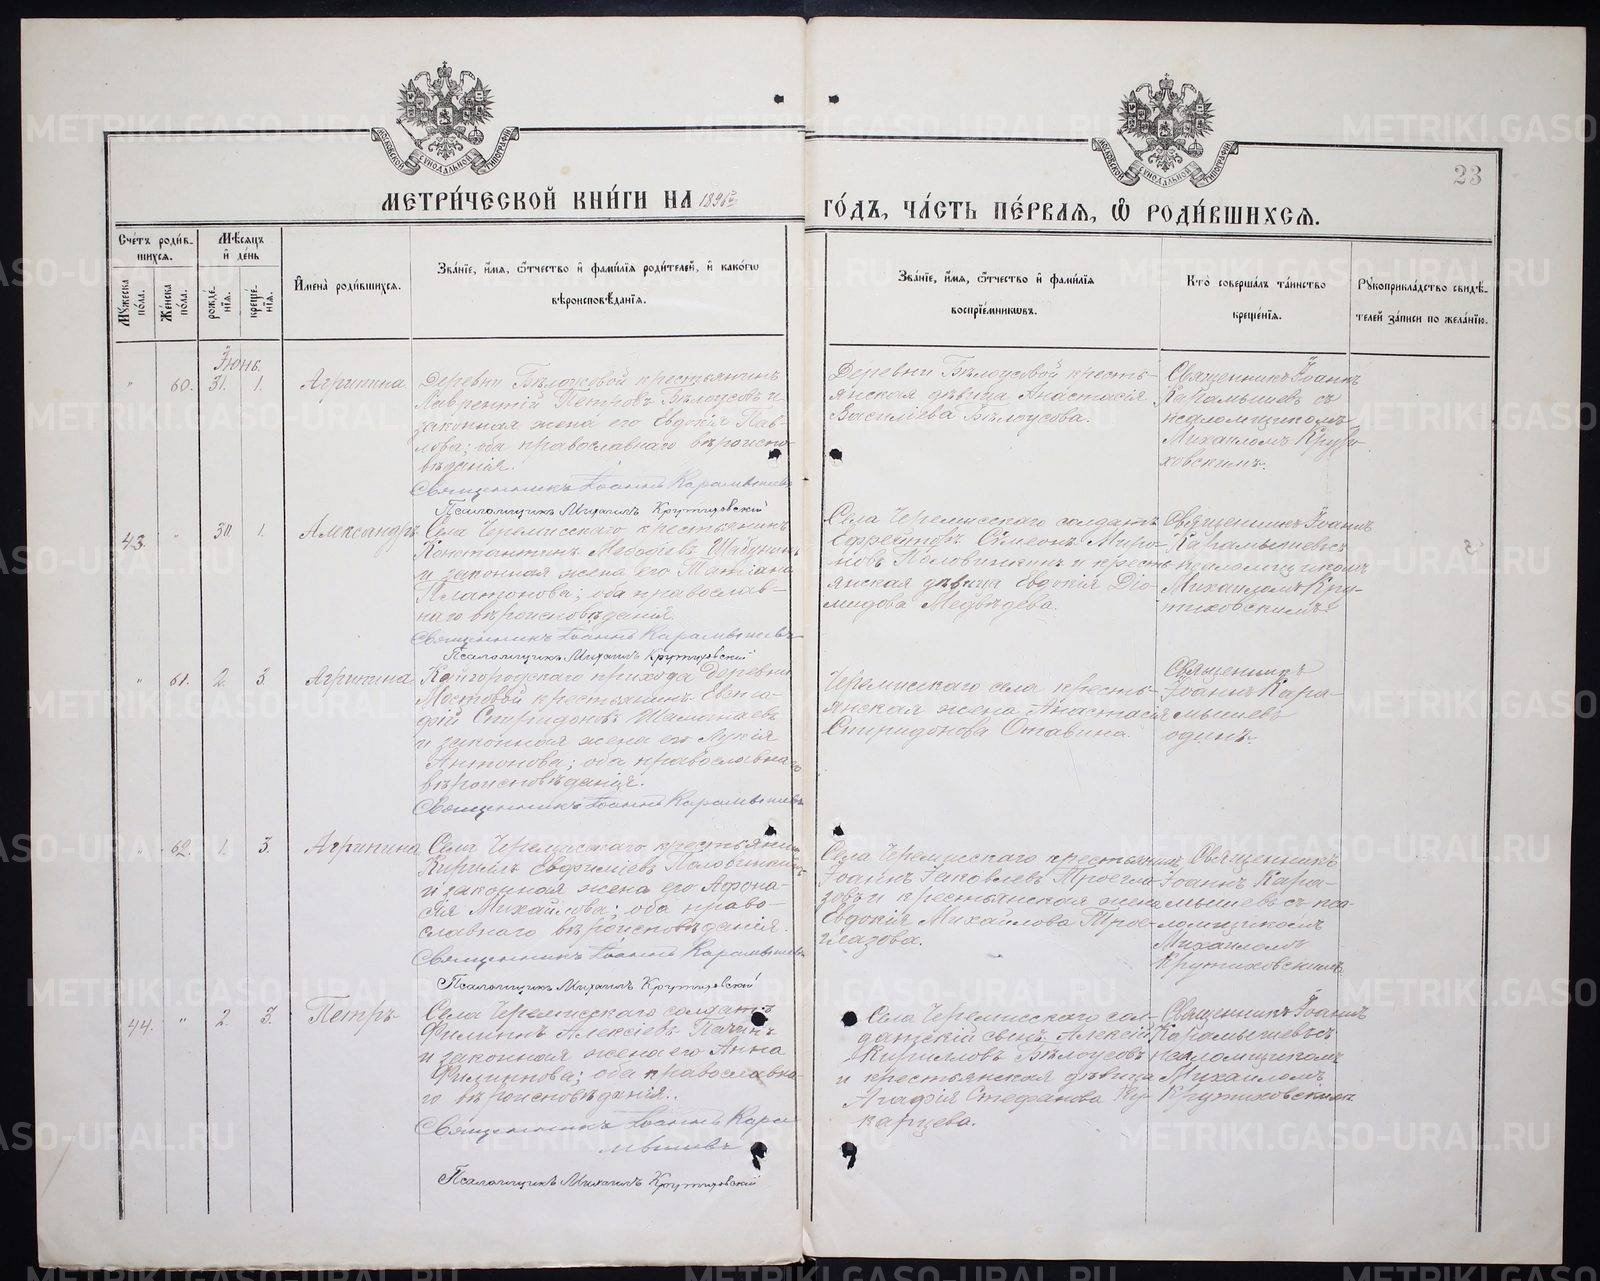 МОСКОВСКОЙ СѴНОДАЛЬНОЙ ТИПОГРАФІИ
МОСКОВСКОЙ СѴНОДАЛЬНОЙ ТИПОГРАФІИ
23
МЕТРИ́ЧЕСКОЙ КНИ́ГИ НА 1896й
ГО́ДЪ, ЧА́СТЬ ПЕ́РВАЯ, Ѽ РОДИ́ВШИХСЯ.
Сче́тъ роди́в-
шихся.
Мѣ́сяцъ
и҆ де́нь
И҆мена̀ роди́вшихся.
Зва́нїе, и҆́мя, ѻ҆́тчество и҆ фами́лїя роди́телей, и҆ како́гѡ
вѣроисповѣ́данїя.
Зва́нїе, и҆́мя, ѻ҆́тчество и҆ фами́лїя
воспрїе́мникѡвъ.
Кто̀ соверша́лъ та́инство
креще́нїя.
Рꙋкоприкла́дство свидѣ́-
телей за́писи по жела́нїю.
Мꙋ́жеска
по́ла.
Же́нска
по́ла.
рожде́-
нїя.
креще́-
нїя.
Іюнь.
" 60. 31. 1. Агрипина
Деревни Бѣлоусовой крестьянинъ
Лаврентій Петровъ Бѣлоусовъ и
законная жена его Евдокія Пав-
лова; оба православнаго вѣроиспо-
вѣданія.
Священникъ Іоаннъ Карамышевъ
Псаломщикъ Михаилъ Крутиховскій
Деревни Бѣлоусовой кресть-
янская дѣвица Анастасія
Васильева Бѣлоусова.
Священникъ Іоаннъ
Карамышевъ съ
псаломщикомъ
Михаиломъ Крути-
ховскимъ.
43. " 30. 1. Александръ
Села Черемисскаго крестьянинъ
Константинъ Меѳодіевъ Шабунинъ
и законная жена его Татіана
Платонова; оба православ-
наго вѣроисповѣданія.
Священникъ Іоаннъ Карамышевъ
Псаломщикъ Михаилъ Крутиховскій
Села Черемисскаго солдатъ
Сѵмеонъ Миро-
новъ Половинкинъ и кресть-
янская дѣвица Евдокія Діо-
мидова Медвѣдева.
Священникъ Іоаннъ
Карамышевъ съ
псаломщикомъ
Михаиломъ Кру-
тиховскимъ.
" 61. 2. 3. Агрипина
Кайгородскаго прихода деревни
Мостовой крестьянинъ
Спиридоновъ
и законная жена его Лукія
Антонова; оба православнаго
вѣроисповѣданія.
Священникъ Іоаннъ Карамышевъ
Черемисскаго села кресть-
янская жена Анастасія
Спиридонова Ставина.
Священникъ
Іоаннъ Кара-
мышевъ
одинъ.
" 62. 1. 3. Агрипина
Села Черемисскаго крестьянинъ
Кириллъ Евфиміевъ Половинкинъ
и законная жена его Афона-
сія Михайлова; оба право-
славнаго вѣроисповѣданія.
Священникъ Іоаннъ Карамышевъ
Псаломщикъ Михаилъ Крутиховскій
Села Черемисскаго крестьянинъ
Іоаннъ Іаковлевъ Троегла-
зовъ и крестьянская жена
Евдокія Михайлова Трое-
глазова.
Священникъ
Іоаннъ Кара-
мышевъ съ пса-
ломщикомъ
Михаиломъ
Крутиховскимъ
44. " 2. 3. Петръ
Села Черемисскаго солдатъ
Филиппъ Алексіевъ Пачинъ
и законная жена его Анна
Филиппова; оба православна-
го вѣроисповѣданія.
Священникъ Іоаннъ Кара-
мышевъ
Псаломщикъ Михаилъ Крутиховскій
Села Черемисскаго сол-
датскій сынъ Алексій
Кирилловъ Бѣлоусовъ
и крестьянская дѣвица
Агафія Стефанова Ку-
карцева.
Священникъ Іоаннъ
Карамышевъ съ
псаломщикомъ
Михаиломъ
Крутиховскимъ
METRIKI.GASO-URAL.RU